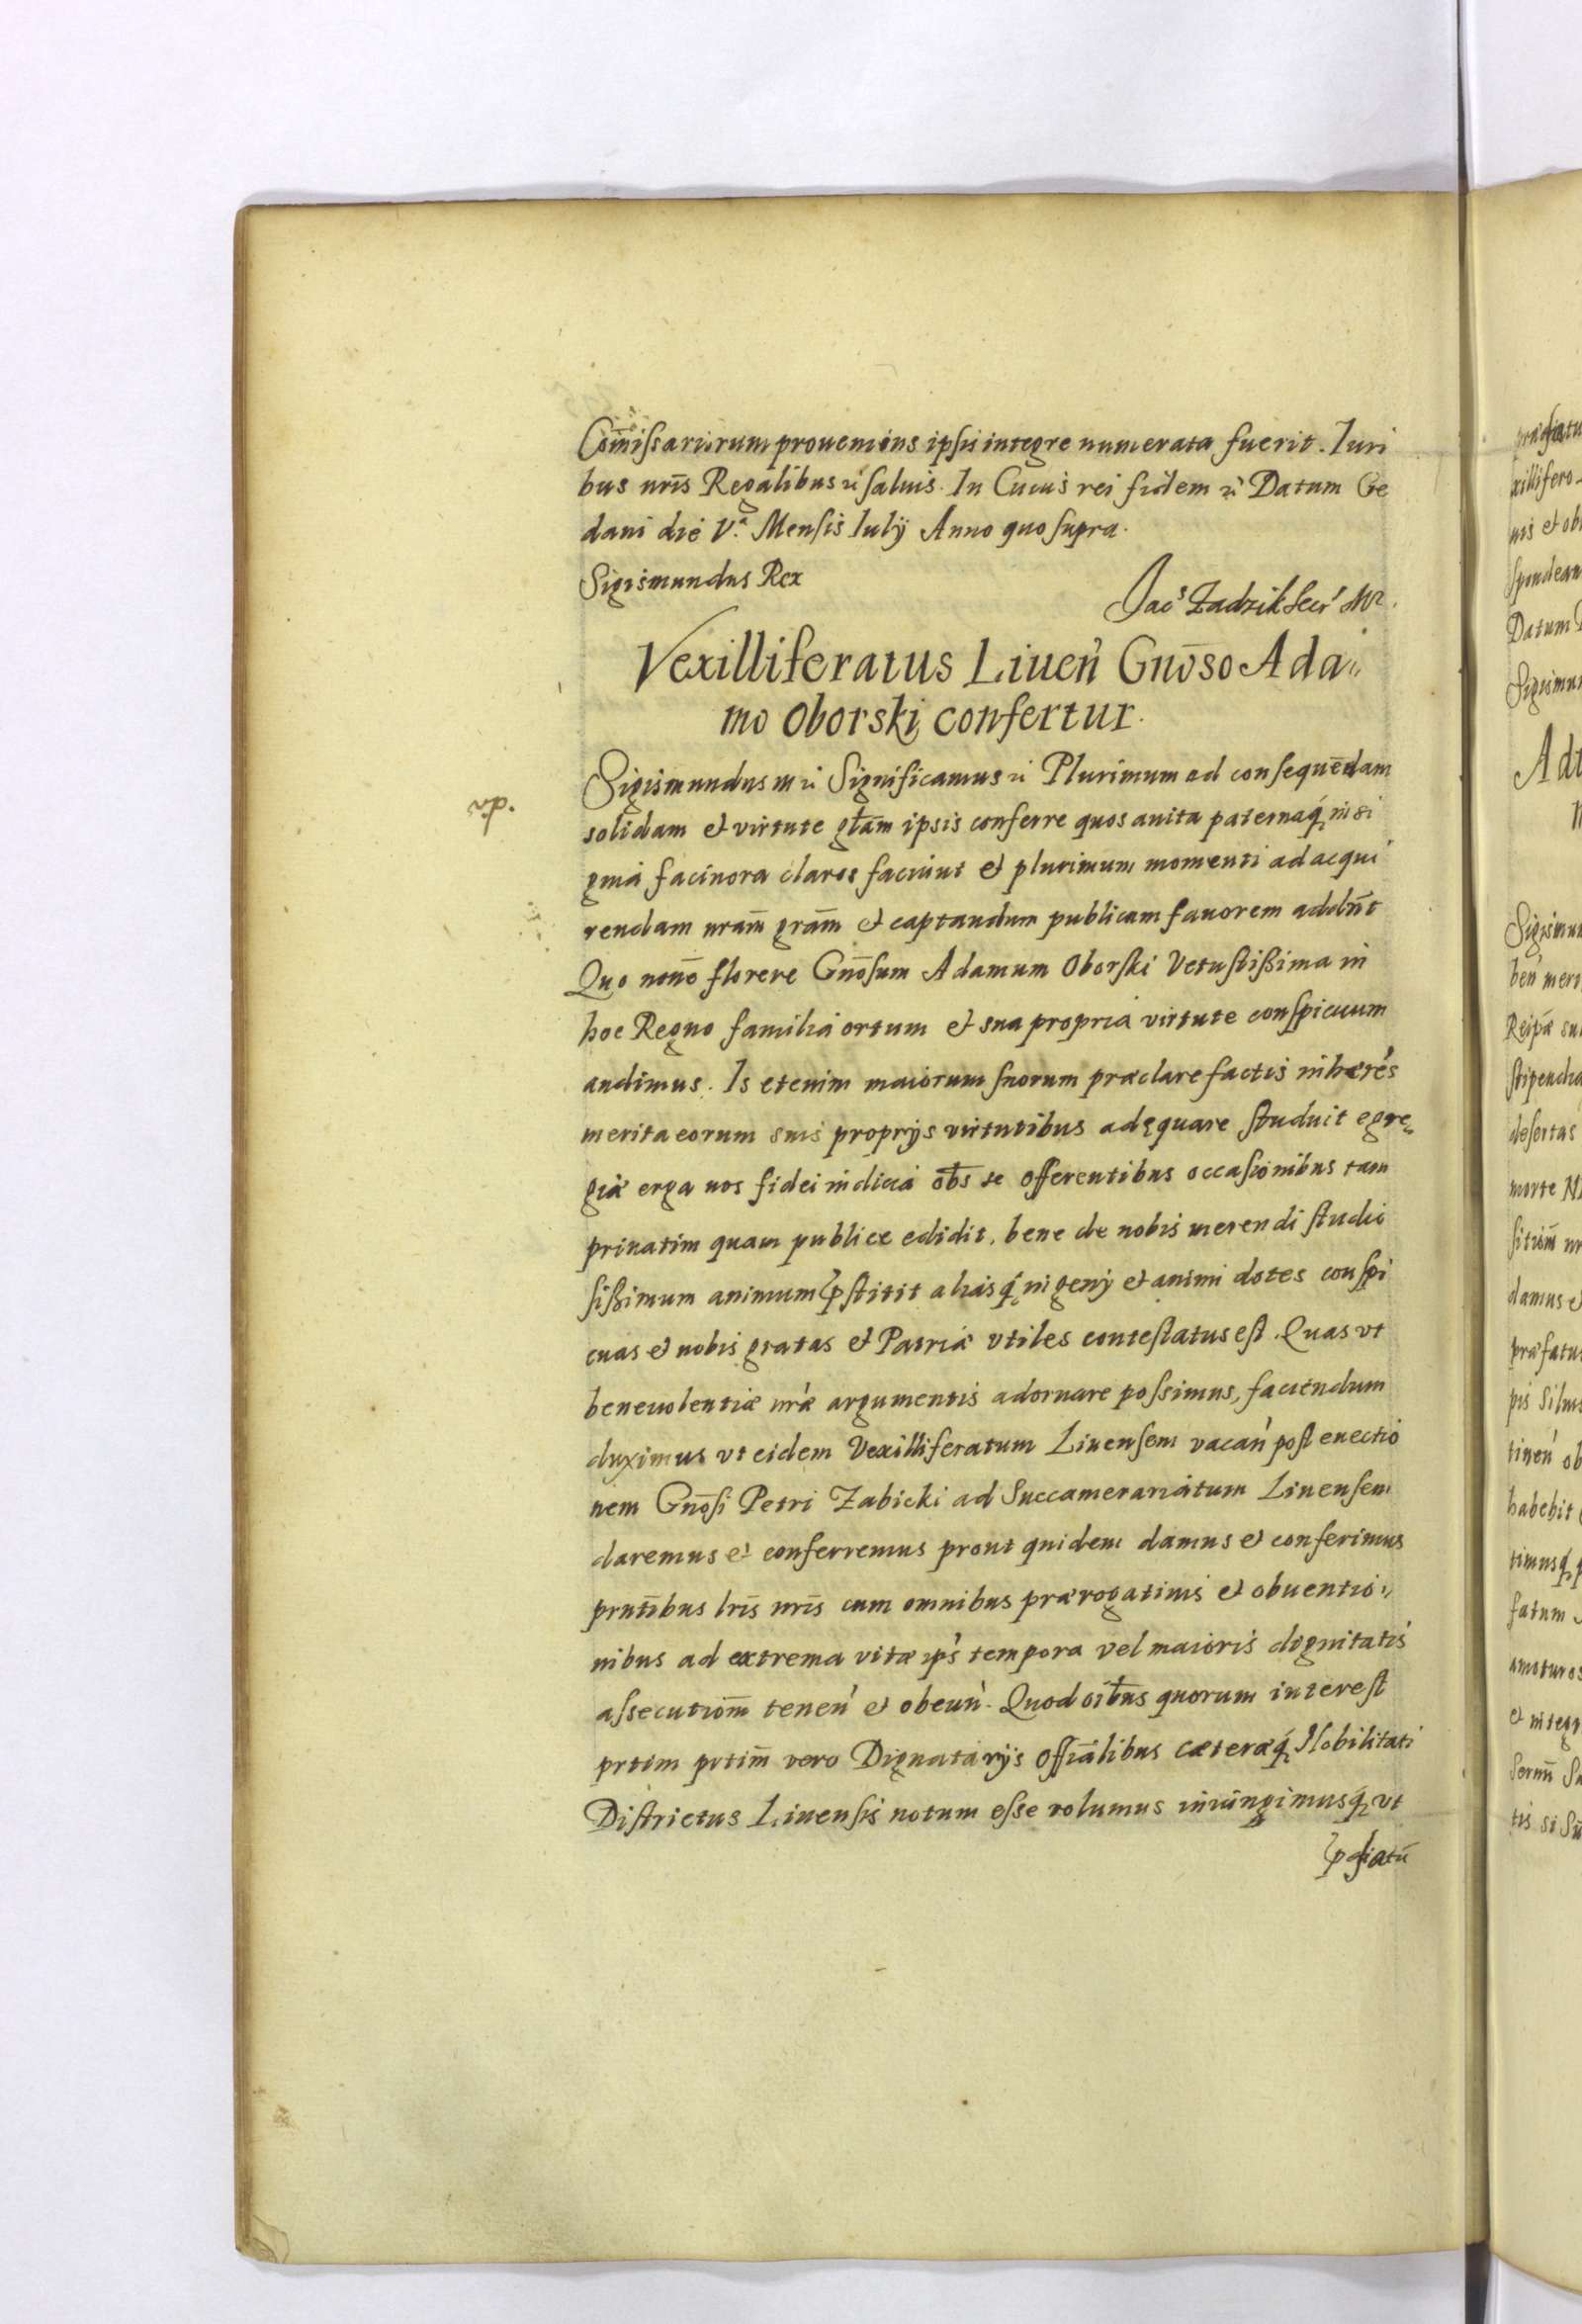 Com̄issariorum proueniens ipsis integre numerata fuerit. Iuri
bus nrīs Regalibus salvis. In Cuius rei fidem Datum Ge
dani die V.ª Mensis Iulÿ Anno quo supra.
Sigismundus Rex
Jac⁹ Zadzik Secr'
Vexilliferatus Liueñ Gnōso Ada„
mo Oborski confertur.
Sigismundus Significamus Plurimum ad consequēdam
vp.
solidam et virtute glām ipsis conferre quos auita paternaq́; insi
gnia facinora claros faciunt et plurimum momenti ad acqui
rendam nram̄ gram̄ et captandum publicum fauorem
Quo florere Gnōsum Adamum Oborski Vetustißima in
hoc Regno familia ortum et sua propria virtute conspicuum
audimus. Is etenim maiorum suorum præclare factis inhæres
merita eorum suis proprijs virtutibus adęquare studuit egre
giæ erga nos fidei indicia se offerentibus occasionibus tam
priuatim quam publice edidit, bene de nobis merendi studio
sißimum animum p̄stitit aliasq́; ingenÿ et animi dotes conspi
cuas et nobis gratas et Patriæ vtiles contestatus est. Quas vt
beneuolentiæ nræ argumentis adornare possimus, faciendum
duximus vt eidem Vexilliferatum Liuensem vacan' post euectio
nem Gnōsi Petri Zabicki ad Succamerariatum Liuensem
daremus et conferremus prout quidem damus et conferimus
prntībus lrīs nrīs cum omnibus prærogatiuis et obuentio„
nibus ad extrema vitæ ips' tempora vel maioris dignitatis
assecutiom̄ tenen' et obeun'. Quod oibūs quorum interest
prtim prtim̄ vero Dignatarÿs offiālibus cæteræq́; Nobilitati
Districtus Liuensis notum esse volumus iniungimusq́; vt
p̄fatū
præfatu
xillifero
nis et ob
spondean
Datum
Sigismun
Ad
Sigismun
ben' meri
Reipæ su
stipendia
desertas
morte
damus e
præfatu
pis Silu
tinen' ob
habebit
timusq́;
fatum
amoturos
et integr
tis si